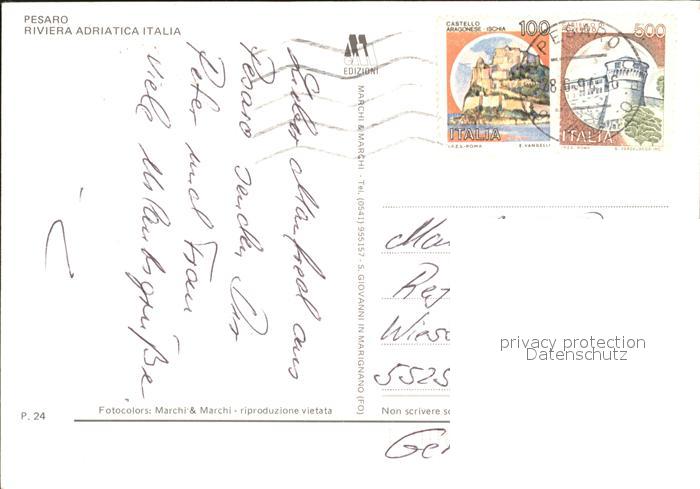 PESARO
RIVIERA ADRIATICA ITALIA
EDIZIONI
CASTELLO
ARAGONESE - ISCHIA
100
ITALIA
I.P.Z.S. - ROMA
E. VANGELLI
500
ITALIA
I.P.Z.S. ROMA
PESARO
Lieber Manfred aus
Pesaro senden Dir
Peter und Frau
viele Urlaubsgrüße.
MARCHI & MARCHI - Tel. (0541) 955157 - S. GIOVANNI IN MARIGNANO (FO)
Wies
5525
Ger
privacy protection
Datenschutz
P. 24
Fotocolors: Marchi & Marchi - riproduzione vietata
Non scrivere